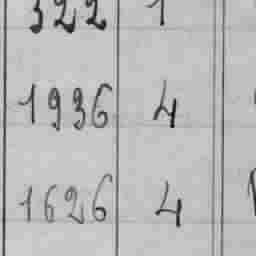 322 1
1936 4
1626 4